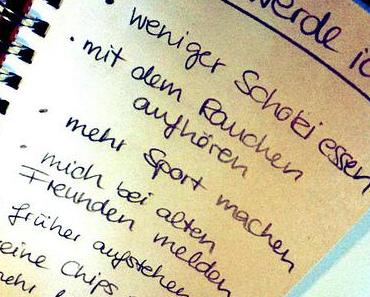 werde ic
• weniger Schoki essen
• mit dem Rauchen
aufhören
• mehr Sport machen
• mich bei alten
Freunden melden
früher aufstehen
keine Chips
mehr